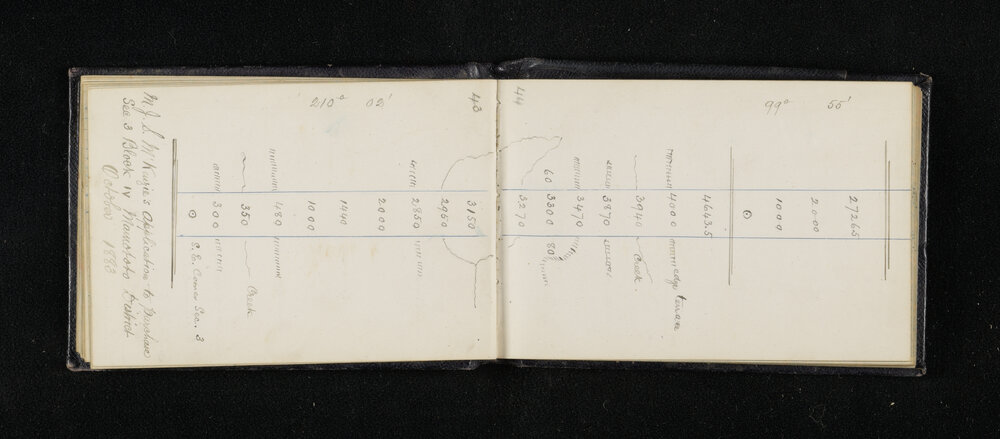 43
M. J. S. McKenzie's Application to Purchase
Sec 3 Block IV District
October 1882
210° 02'
3150
2950
2850
2000
1440
1000
480
350 Creek
300
S.E. Corner Sec. 3
44
99° 55'
27265
2000
1000
4643.5
4000 edge terrace
3940 Creek
3870
3470
60 3300 80
3270